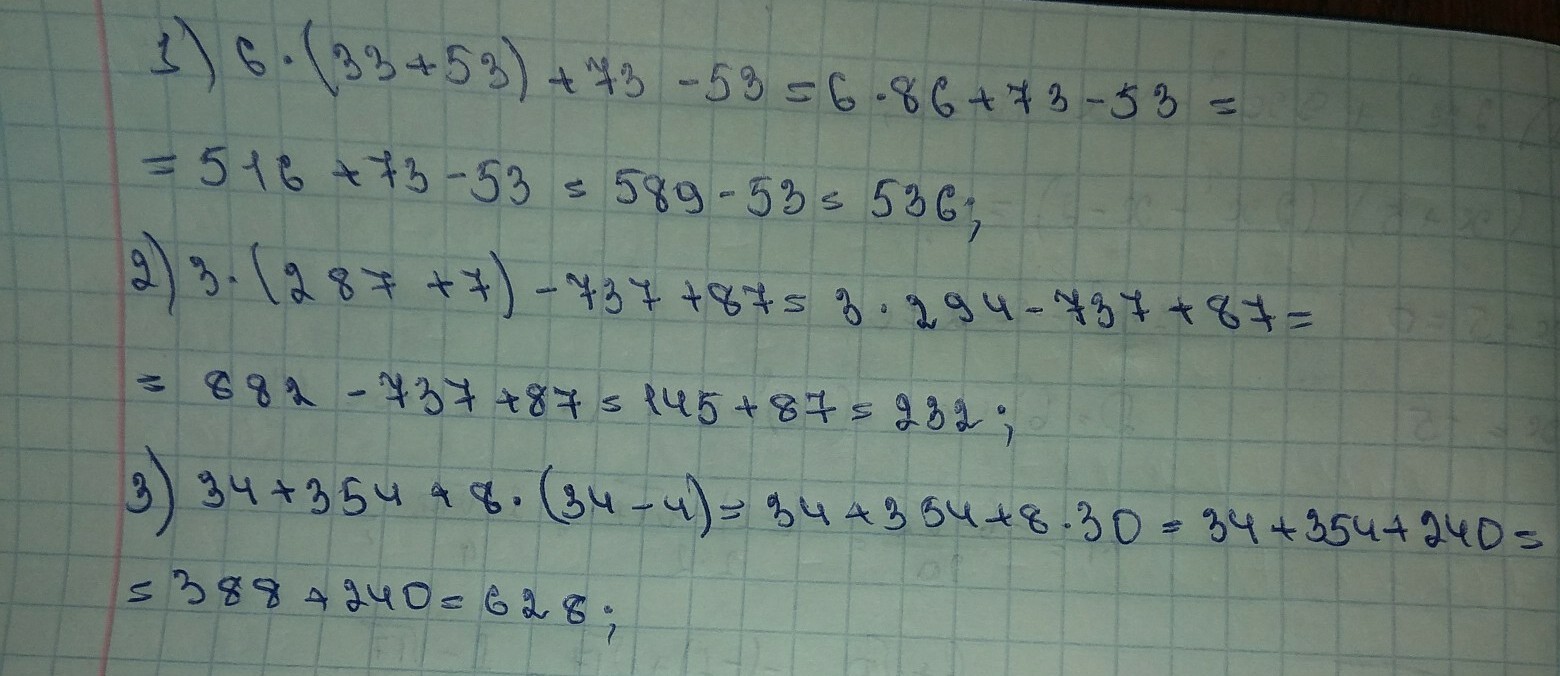 1) 6·(33+53)+73-53=6·86+73-53=
=516+73-53=589-53=536;
2) 3·(287+7)-737+87=3·294-737+87=
=882-737+87=145+87=232;
3) 34+354+8·(34-4)=34+354+8·30=34+354+240=
=388+240=628;